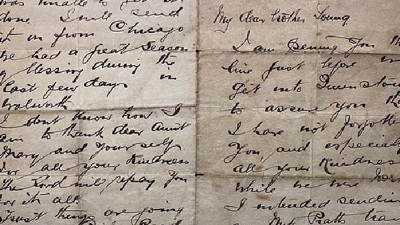 was unable to get it
done. I will send
it on from Chicago
We had a great Season
of blessing during the
last few days in
Walworth
I dont know how I
am to thank dear Aunt
Mary and Yourself
for all your Kindness
The Lord will repay You
for it all.
Trust things are going
My dear Brother Young
I am penning You this
line just before we
get into Queenstown
to assure you that
I have not forgotten
You and especially
all your Kindness
while we were
I intended sending
Mr Pratts